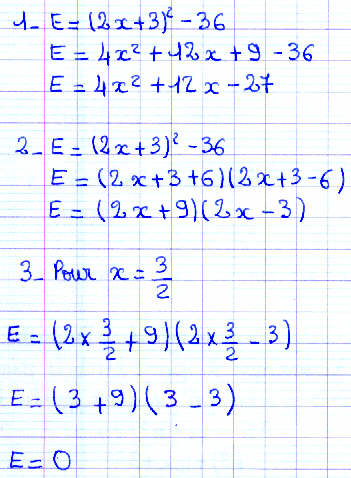 1- E = (2x+3)² - 36
E = 4x² + 12x + 9 - 36
E = 4x² + 12x - 27
2- E = (2x+3)² - 36
E = (2x+3+6)(2x+3-6)
E = (2x+9)(2x-3)
3- Pour x = 3/2
E = (2 × 3/2 + 9)(2 × 3/2 - 3)
E = (3+9)(3-3)
E = 0